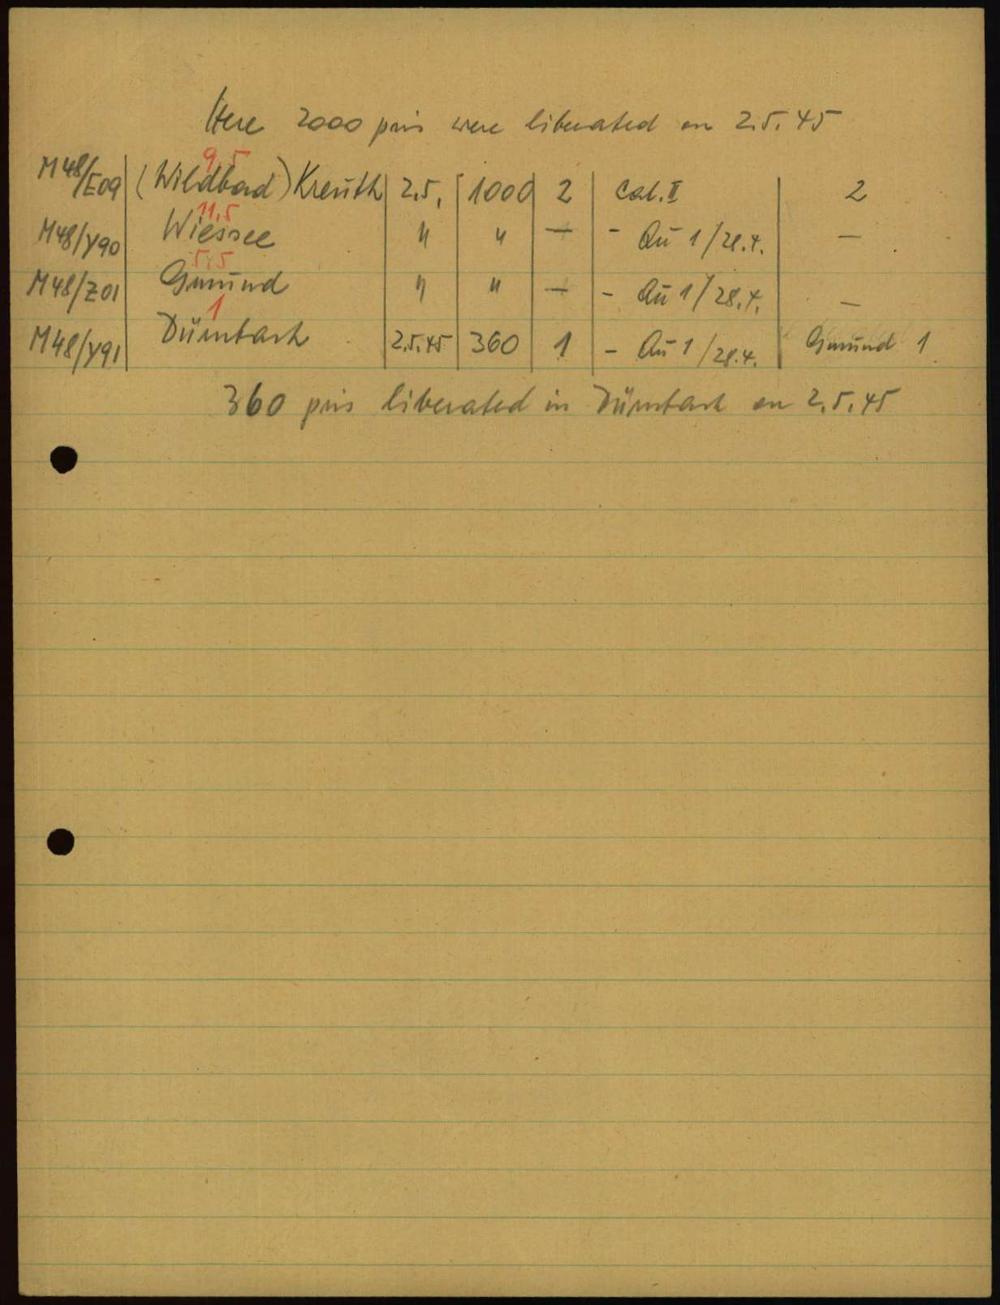 Here 2000 pris were liberated on 2.5.45
9,5
M48/E09 (Wildbad) Kreuth 2.5. 1000 2 Cat. II 2
11,5
M48/Y90 Wiessee " " — - Qu 1/28.4. —
5,5
M48/Z01 Gmund " " — - Qu 1/28.4. —
1
M48/Y91 Dürnbach 2.5.45 360 1 - Qu 1/28.4. Gmund 1
360 pris liberated in Dürnbach on 2.5.45